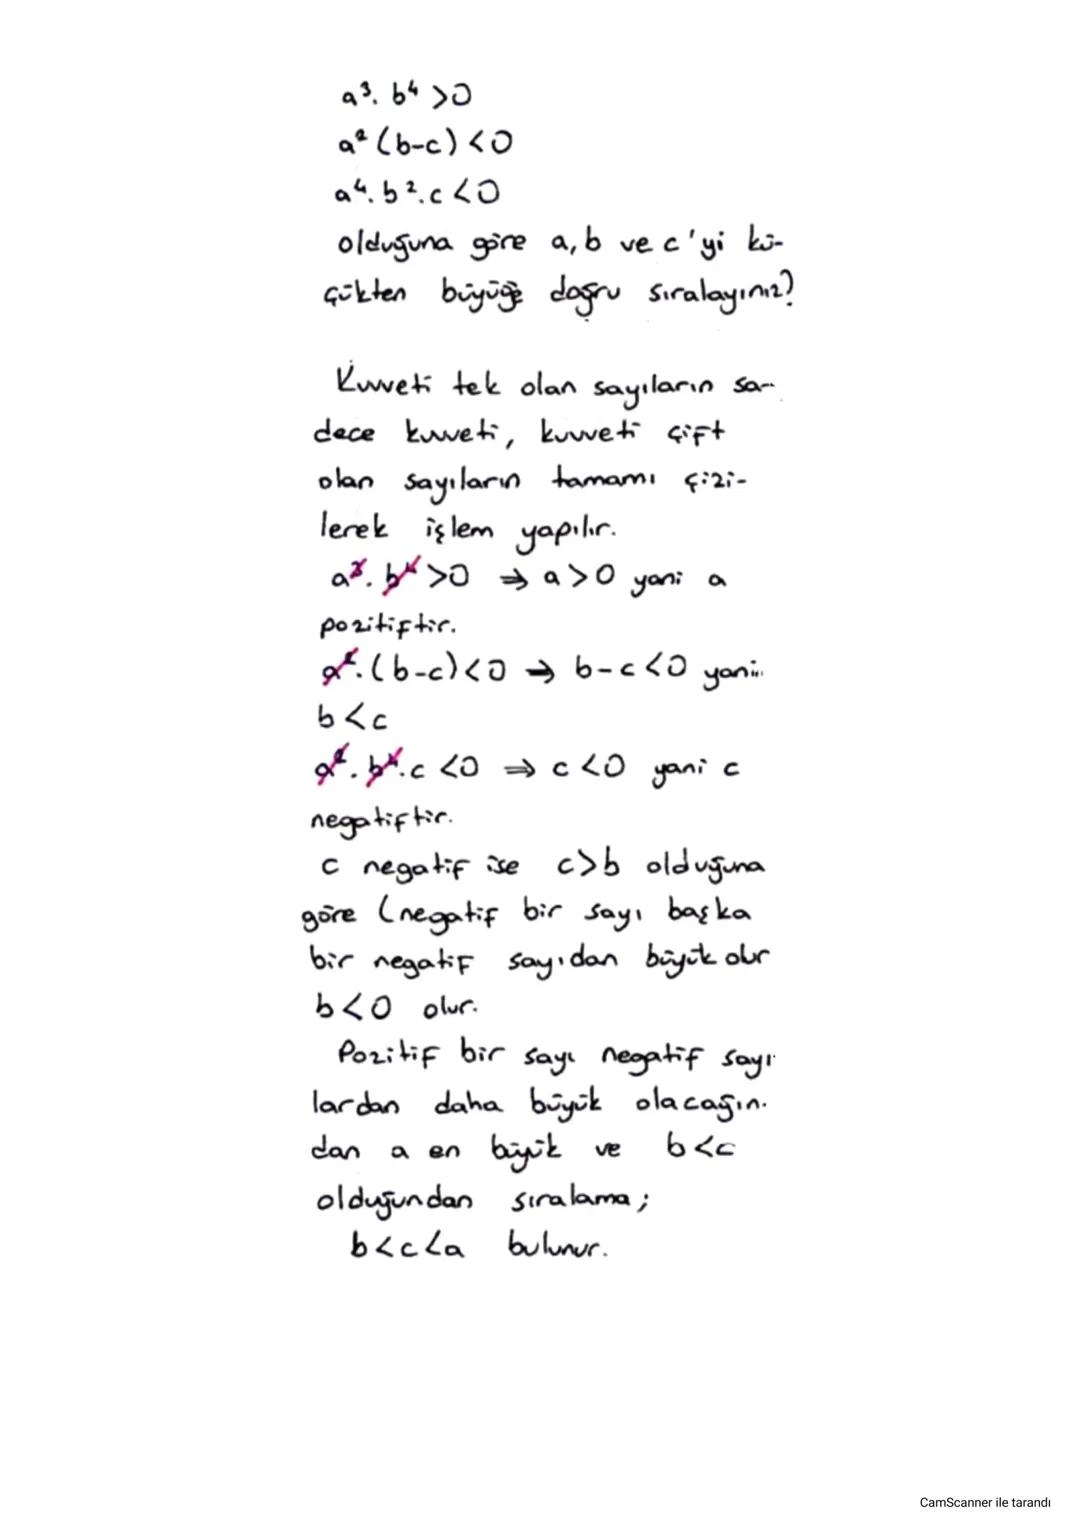 a³. b⁴ >0
a²(b-c) <0
a⁴. b².c <0
olduğuna göre a, b ve c'yi kü-
çükten büyüğe doğru sıralayınız?
Kuvveti tek olan sayıların sa-
dece kuvveti, kuvveti çift
olan sayıların tamamı çizi-
lerek işlem yapılır.
a³. b⁴ >0 ⇒ a>0 yani a
pozitiftir.
a².(b-c)<0 → b-c<0 yani
b<c
a². b⁴.c <0 ⇒ c<0 yani c
negatiftir.
c negatif ise c>b olduğuna
göre (negatif bir sayı başka
bir negatif sayıdan büyük olur
b<0 olur.
Pozitif bir sayı negatif sayı
lardan daha büyük olacağın.
dan a en büyük ve b<c
olduğundan sıralama;
b<c<a bulunur.
CamScanner ile tarandı